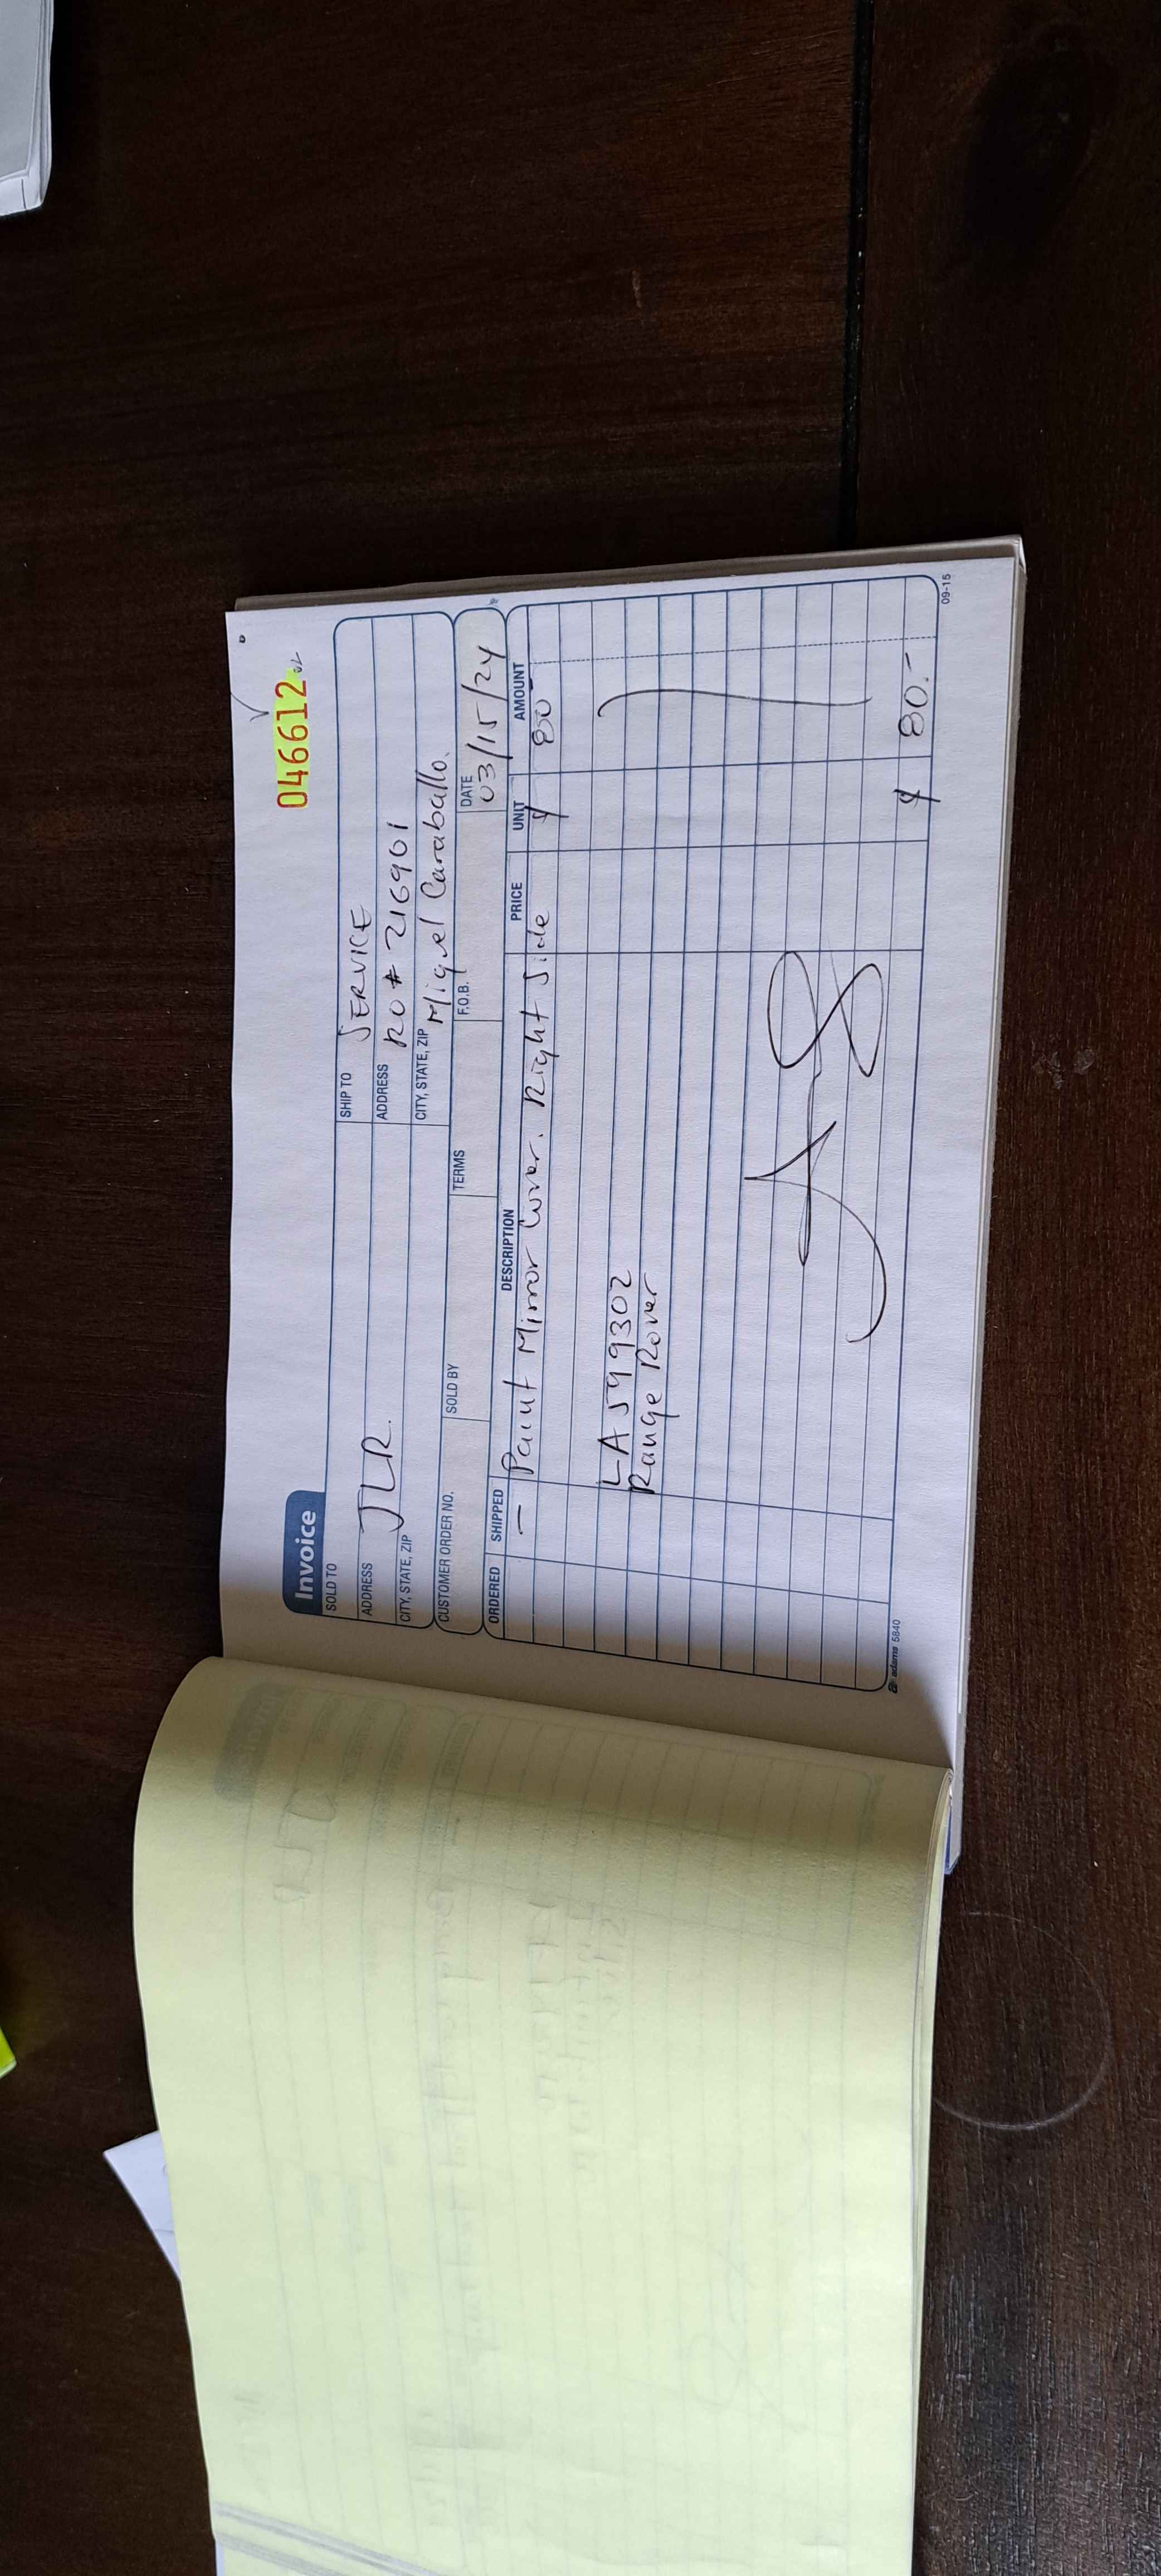 046612
Invoice
SOLD TO
SHIP TO SERVICE
ADDRESS JLR.
ADDRESS RO # 216901
CITY, STATE, ZIP
CITY, STATE, ZIP Miguel Caraballo.
CUSTOMER ORDER NO. SOLD BY TERMS F.O.B. DATE 03/15/24
ORDERED SHIPPED DESCRIPTION PRICE UNIT AMOUNT
— Paint Mirror Cover. Right Side $ 80-
LA599302
Range Rover
$ 80.-
adams 5840
09-15